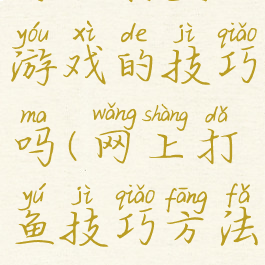 yóu xì de jì qiǎo
游戏的技巧
ma wǎng shàng dǎ
吗(网上打
yú jì qiǎo fāng fǎ
鱼技巧方法